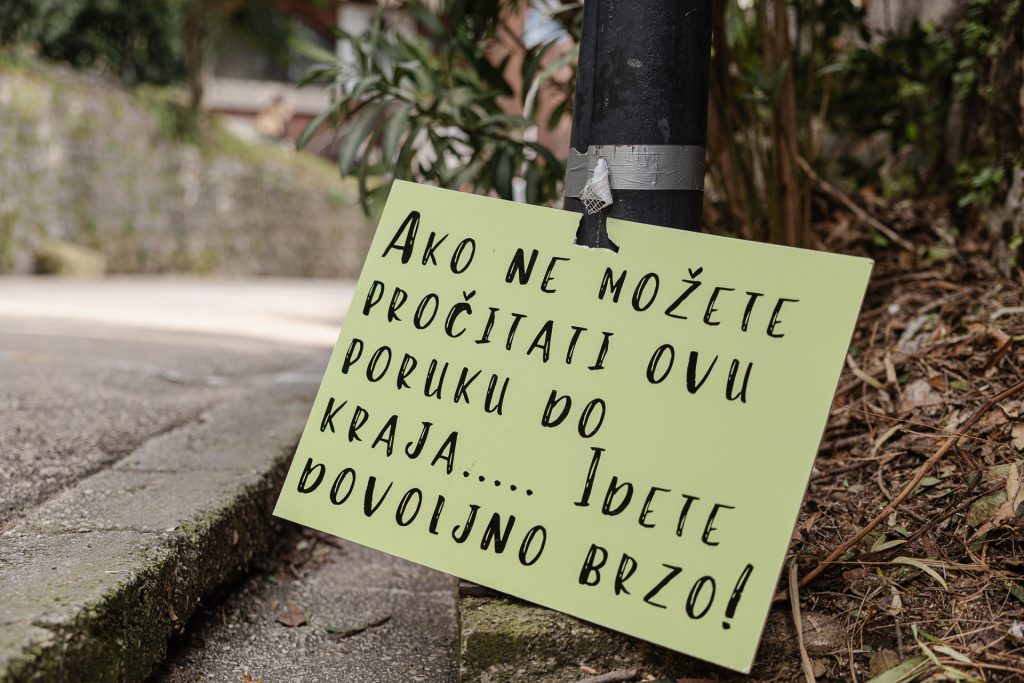 Ako ne možete
pročitati ovu
poruku do
kraja..... Idete
dovoljno brzo!